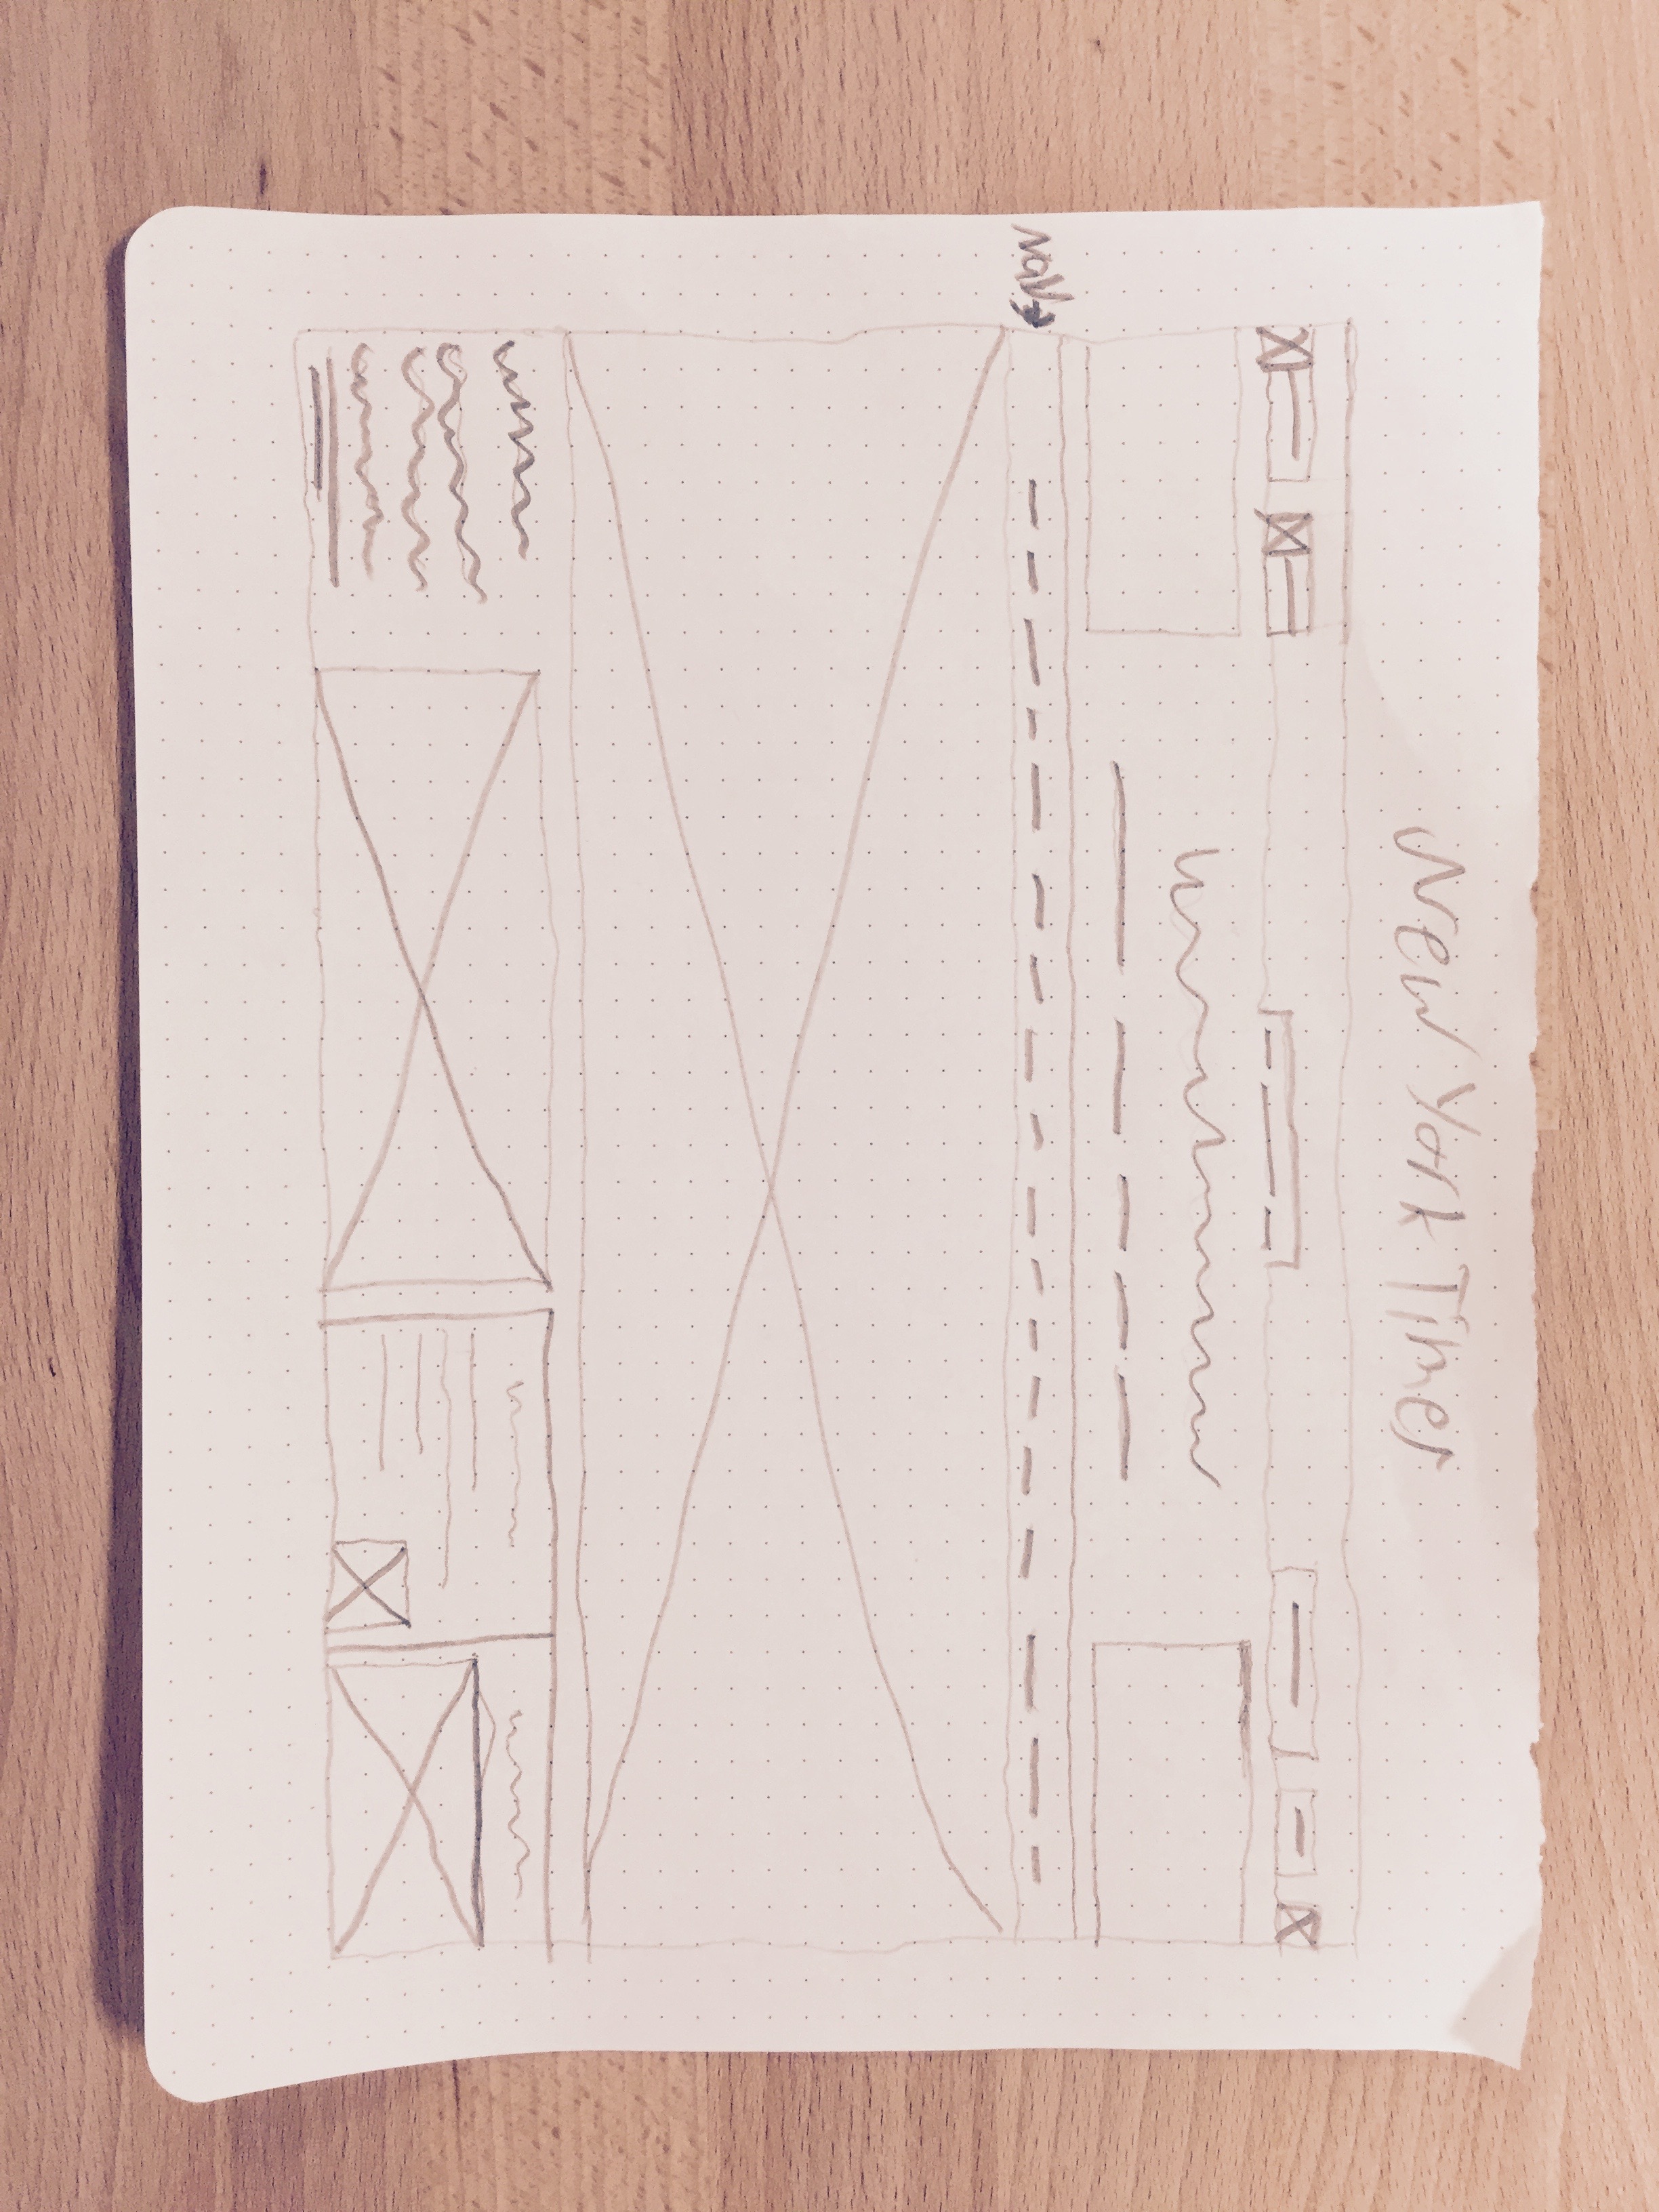 New York Times
nav